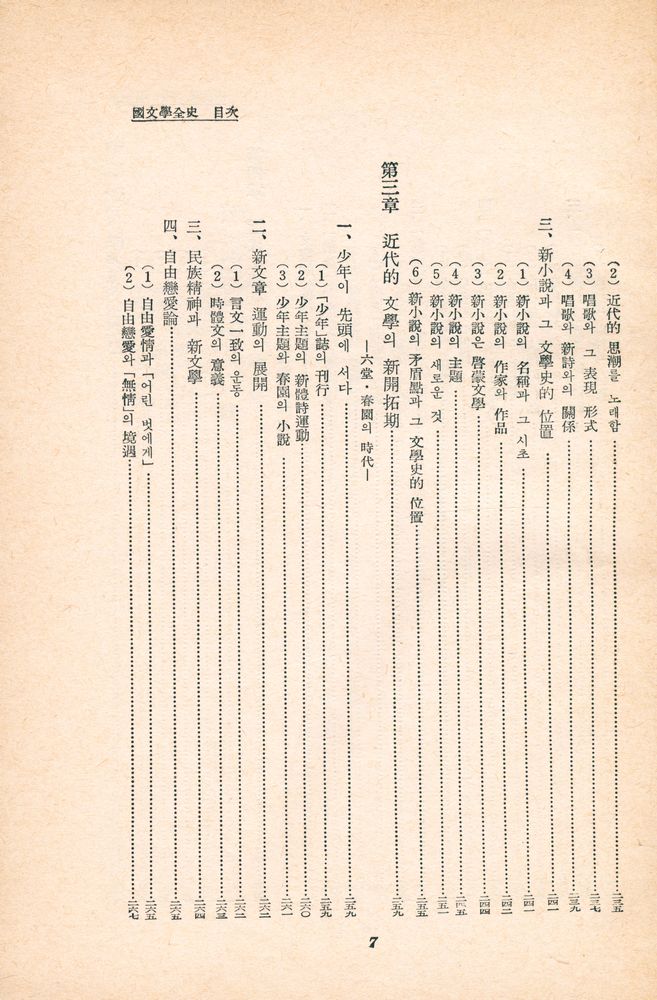 國文學全史 目次
(2) 近代的 思潮를 노래함……二三五
(3) 唱歌와 그 表現 形式……二三七
(4) 唱歌와 新詩와의 關係……二三九
三、新小說과 그 文學史的 位置……二四一
(1) 新小說의 名稱과 그 시초……二四一
(2) 新小說의 作家와 作品……二四二
(3) 新小說은 啓蒙文學……二四四
(4) 新小說의 主題……二四五
(5) 新小說의 새로운 것……二五一
(6) 新小說의 矛盾點과 그 文學史的 位置……二五五
第三章 近代的 文學의 新開拓期……二五九
—六堂·春園의 時代—
一、少年이 先頭에 서다……二五九
(1) 「少年」誌의 刊行……二五九
(2) 少年主題의 新體詩運動……二六〇
(3) 少年主題와 春園의 小說……二六一
二、新文章 運動의 展開……二六二
(1) 言文一致의 운동……二六二
(2) 時體文의 意義……二六三
三、民族精神과 新文學……二六四
四、自由戀愛論……二六五
(1) 自由愛情과「어린 벗에게」……二六五
(2) 自由戀愛와「無情」의 境遇……二六七
7